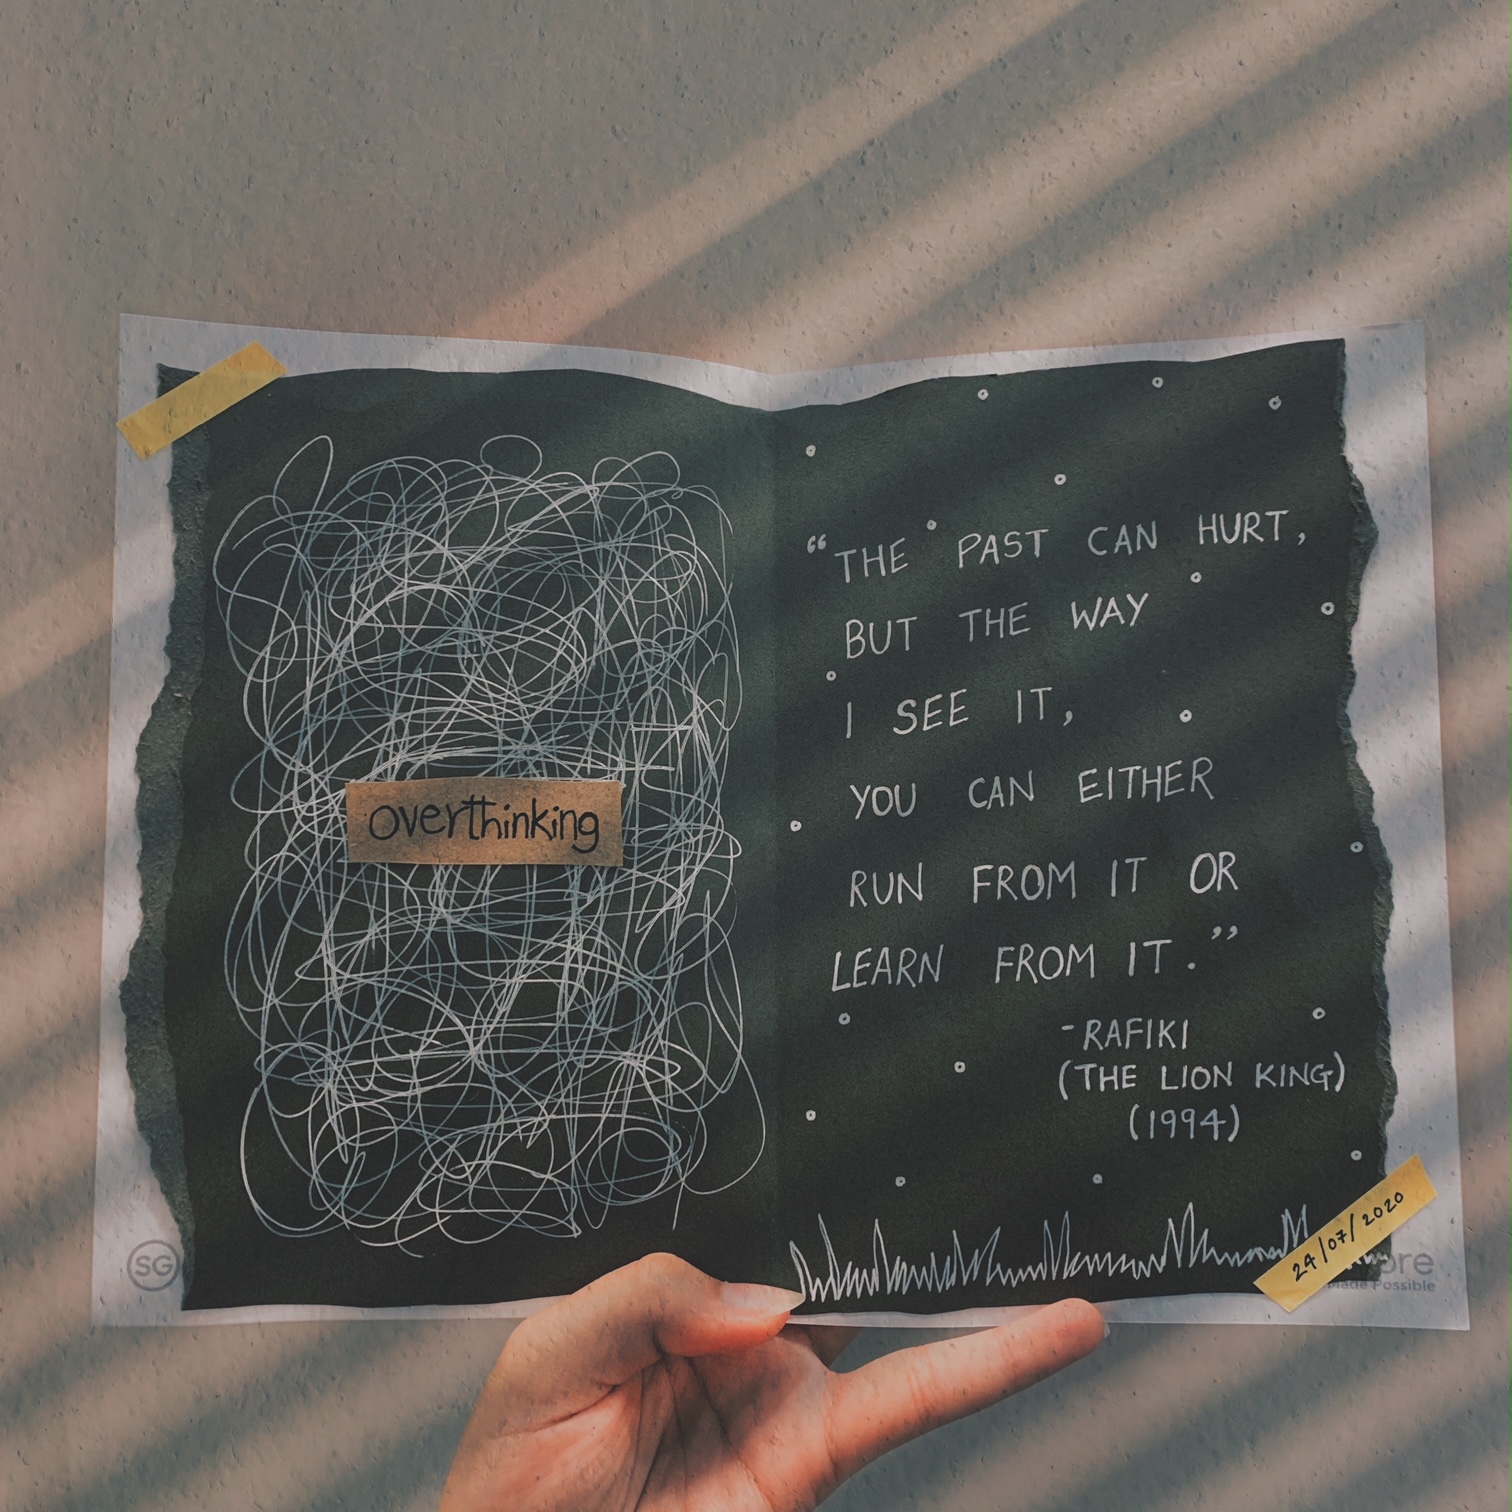 overthinking
“THE PAST CAN HURT,
BUT THE WAY
I SEE IT,
YOU CAN EITHER
RUN FROM IT OR
LEARN FROM IT.”
-RAFIKI
(THE LION KING)
(1994)
24/07/2020
SG
Made Possible